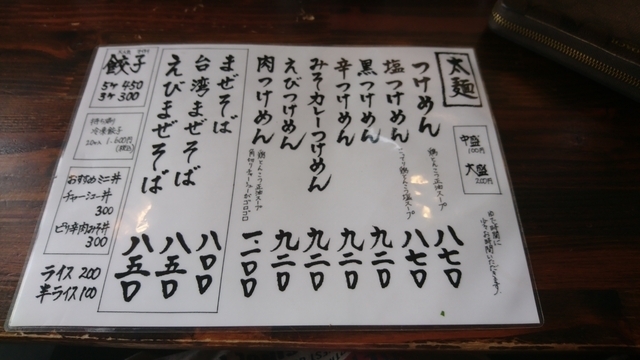 太麺
中盛
100円
大盛
200円
つけめん
鶏とんこつ正油スープ
八七〇
塩つけめん
八七〇
黒つけめん
九二〇
辛つけめん
九二〇
みそカレーつけめん
九二〇
えびつけめん
九二〇
肉つけめん
鶏とんこつ正油スープ
角切りチャーシューがゴロゴロ
一、二〇〇
まぜそば
八〇〇
台湾まぜそば
八五〇
えびまぜそば
八五〇
餃子
5ケ 450
3ケ 300
冷凍餃子
おすすめミニ丼
チャーシュー丼
300
ピリ辛肉みそ丼
300
ライス 200
半ライス 100